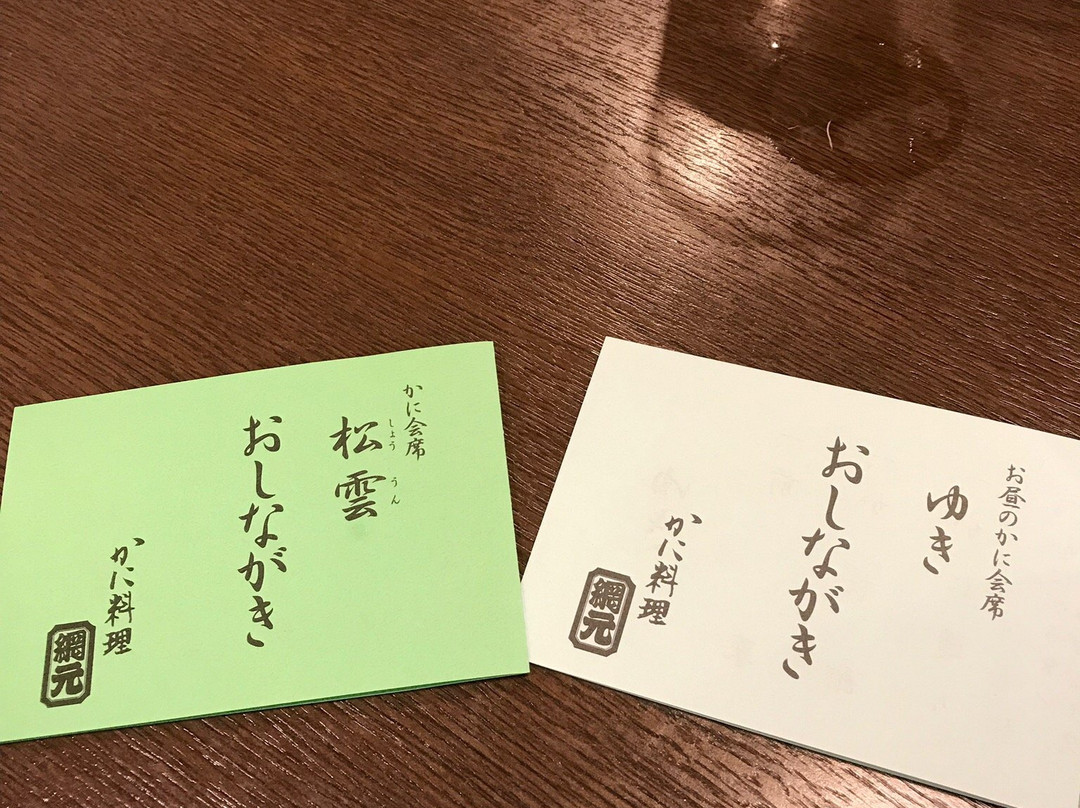 かに会席
松雲
しょううん
おしながき
かに料理
網元
お昼のかに会席
ゆき
おしながき
かに料理
網元